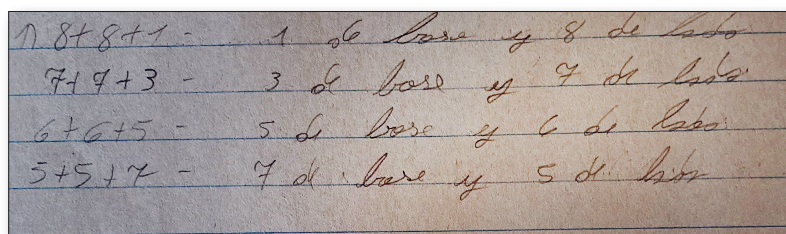 1) 8+8+1 - 1 de base y 8 de lado
7+7+3 - 3 de base y 7 de lado
6+6+5 - 5 de base y 6 de lado
5+5+7 - 7 de base y 5 de lado